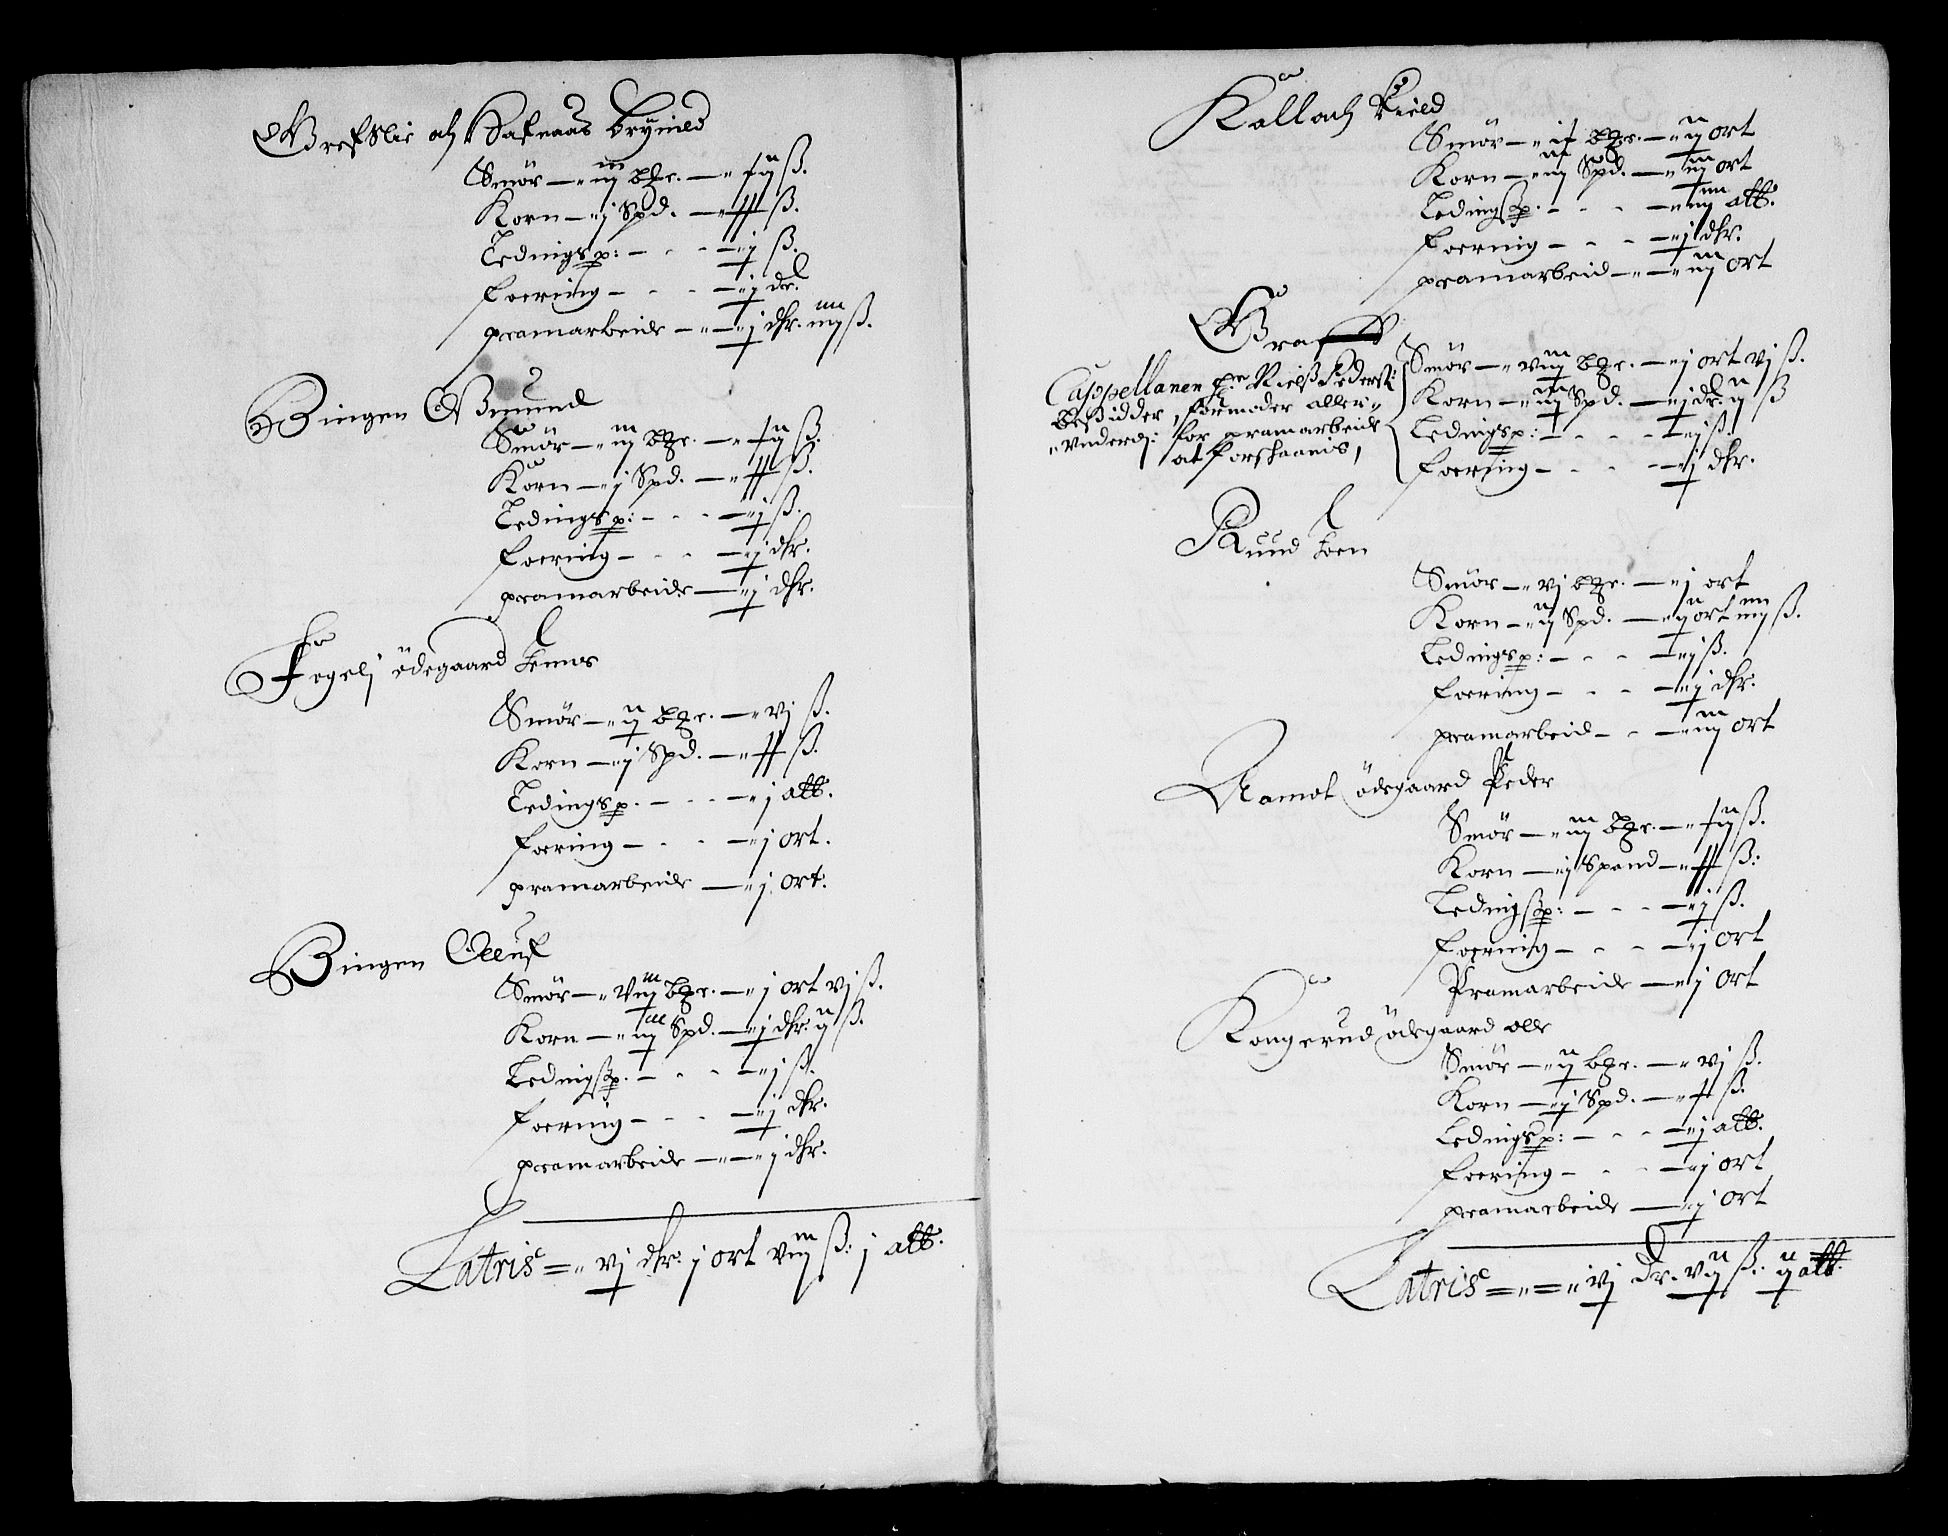 Grefslie och Hafnaas Brynild
Smör — iij bgr. — ix ß.
Korn — j Spd. — ß.
Ledingsp: — j ß.
foering — j dr.
pramarbeide — j dhr. iiij ß.
Bingen Gumund
Smör — iij bgr. — ß.
Korn — j Spd. — ß.
Ledingsp: — j ß.
foering — j dhr.
pramarbeide — j dhr.
Fogelj ödegaard
Smör — ij bgr. — vj ß.
Korn — j Spd. — ß.
Ledingsp. — j alb.
foering — j ort.
pramarbeide — j ort.
Bingen Olluf
Smör — viij bgr. — j ort vj ß.
Korn — iij Spd. — j dhr. ij ß.
Ledingsp. — j ß.
foering — j dhr.
pramarbeide — j dhr.
Latris = vj dhr: j ort viij ß: j alb.
Kallach Kield
Smör — bgr. — ij ort
Korn — iij Spd. — iij ort
Ledingsp. — iiij alb.
foering — j dhr.
pramarbeid — iij ort
Graff
Cappellanen hr Nielß Pederß:
beßidder, formoder aller
underd: for pramarbeide
at forskaanis,
Smör — viij bgr. — j ort vj ß.
Korn — iij Spd. — j dr. ij ß
Ledingsp: — j ß.
foering — j dhr.
Ruud
Smör — vj bgr. — j ort
Korn — ij Spd. — ij ort iiij ß.
Ledingsp: — j ß.
foering — j dhr.
pramarbeid — iij ort
Aamot ödegaard Peder
Smör — iij bgr. — ß.
Korn — j Spand — ß:
Ledingsp: — j ß.
foering — j ort
Pramarbeide — j ort
Kongerud ödegaard olle
Smör — ij bgr. — vj ß.
Korn — j Spd. — ß.
Ledingsp: — j alb.
foering — j ort
pramarbeide — j ort
Latris = = vj Dr. vij ß: ij alb.